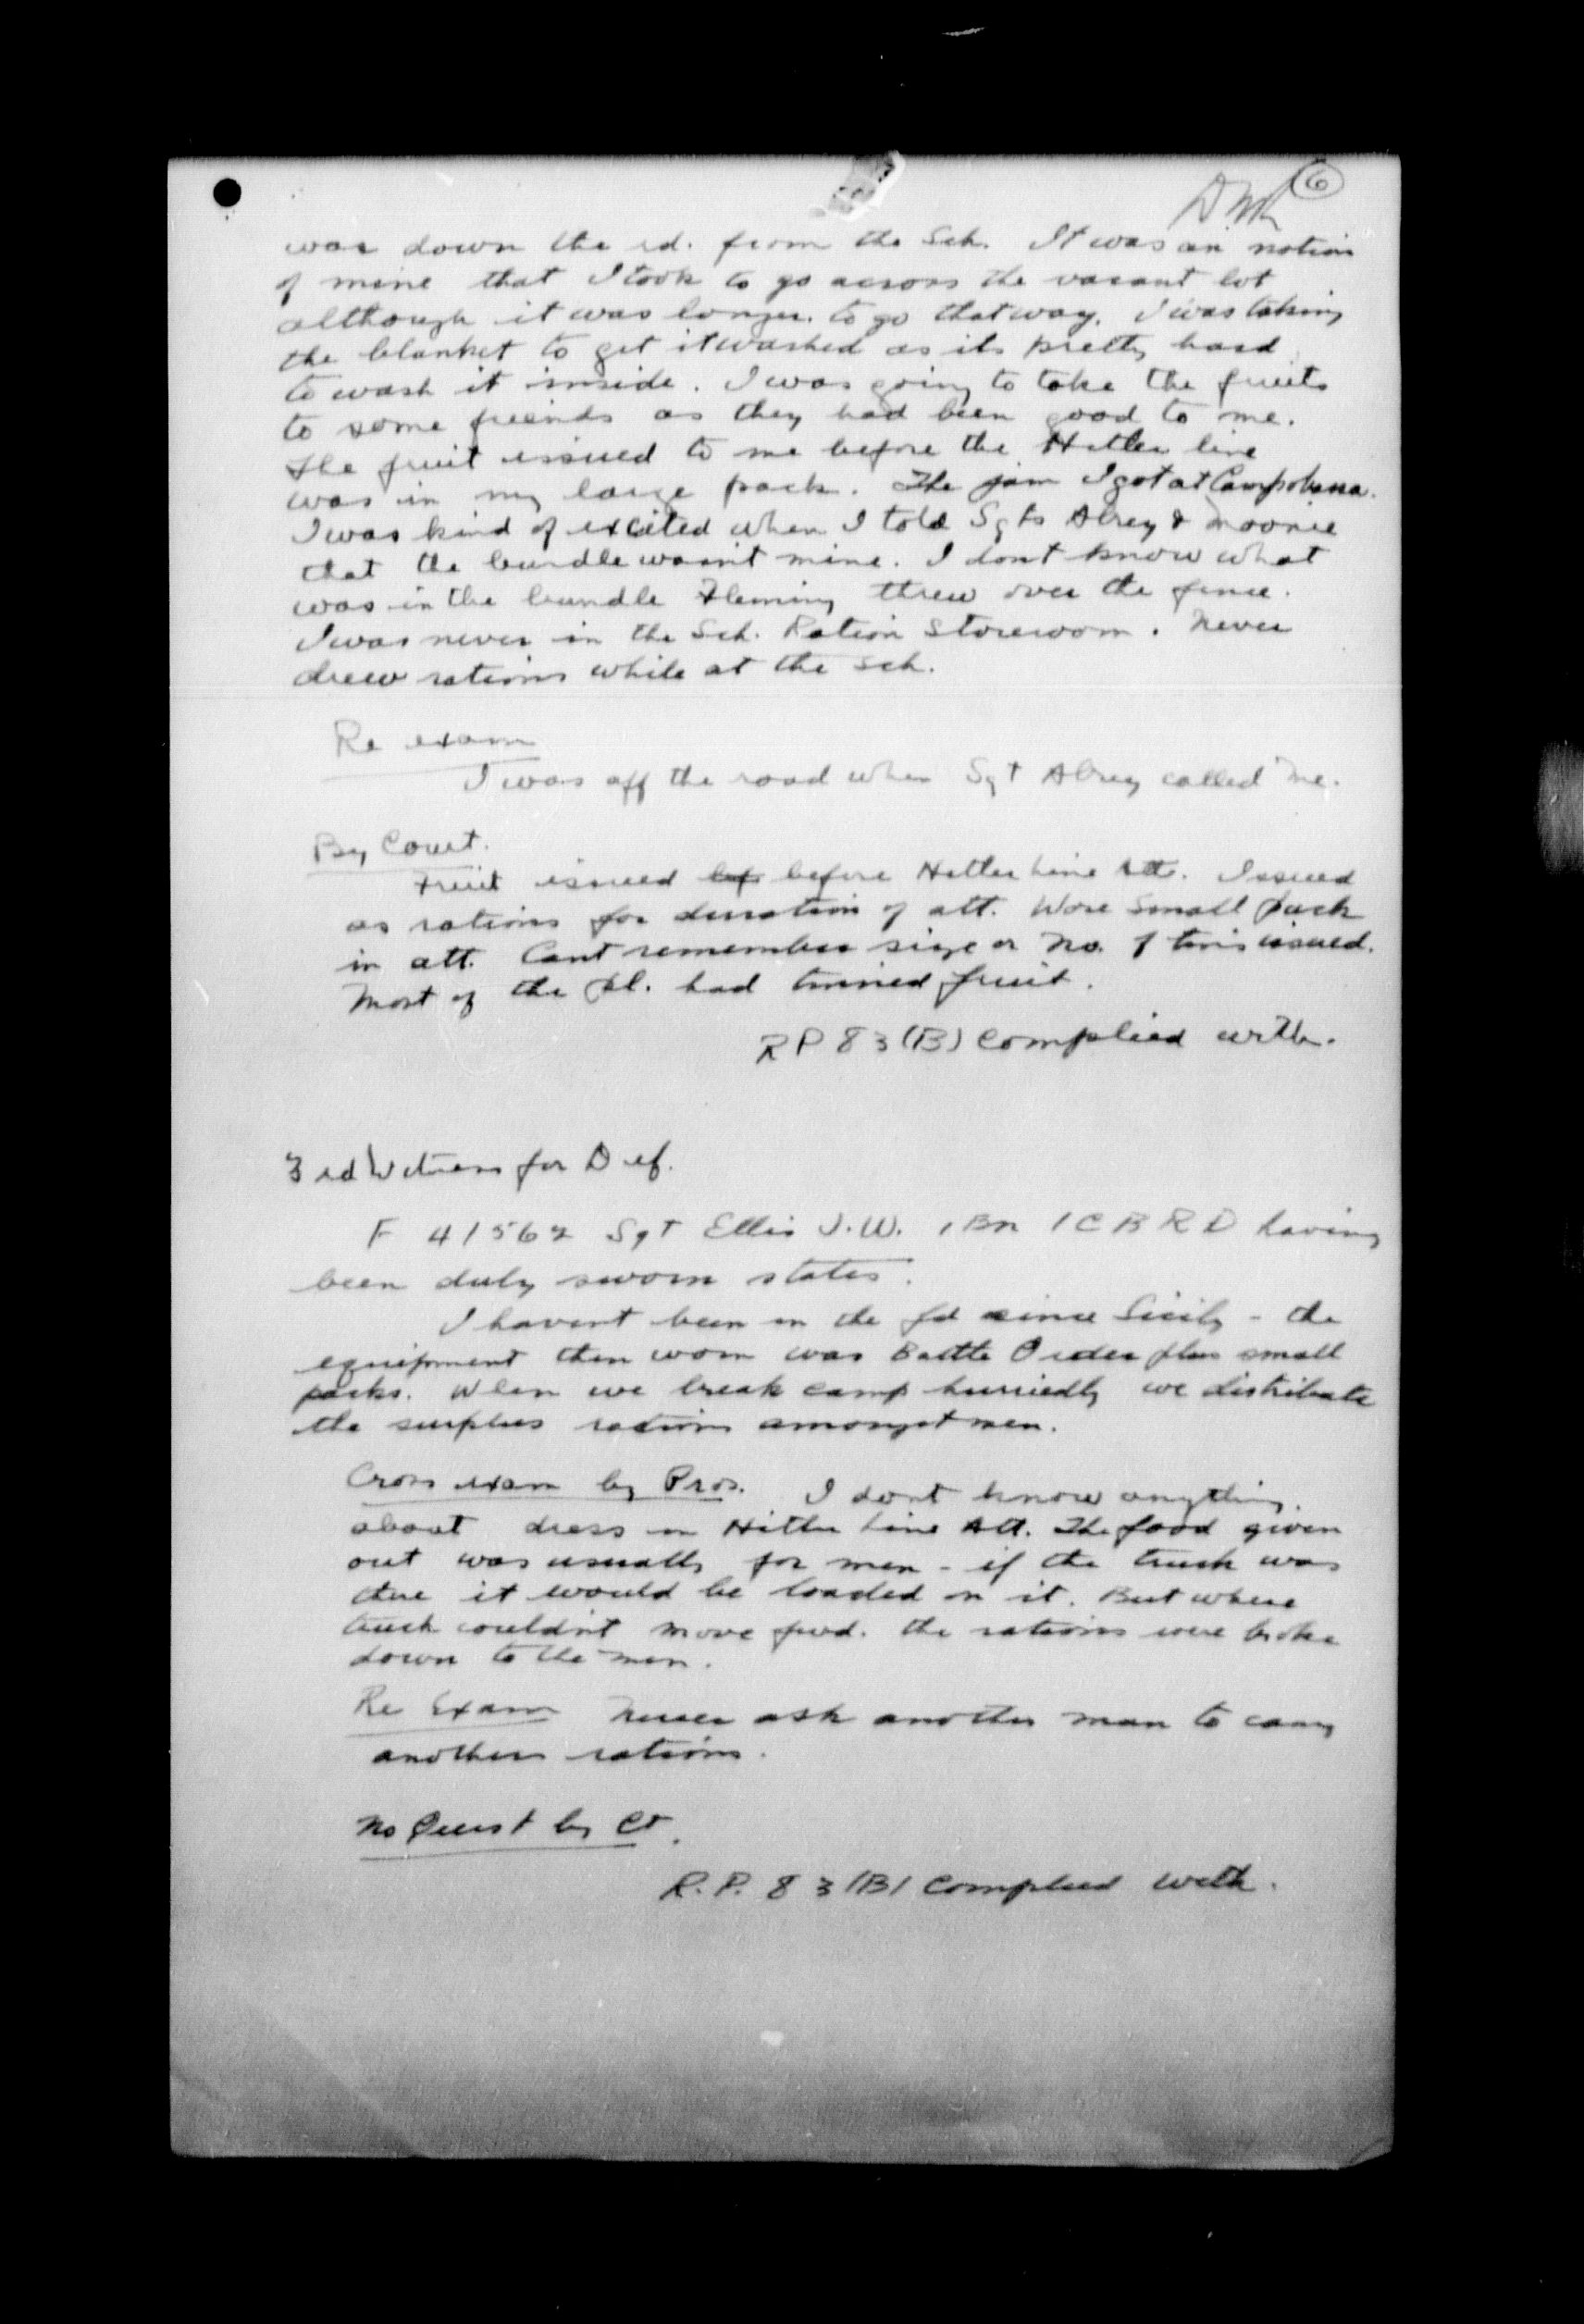 6
was down the rd. from the Sch. It was an notion
of mine that I took to go across the vacant lot
although it was longer to go that way. I was taking
the blanket to get it washed as its pretty hard
to wash it inside. I was going to take the fruits
to some freinds as they had been good to me.
The fruit issued to me before the Hitler line
was in my large pack. The jam I got at
I was kind of excited when I told Sgts Abrey & Moorie
that the bundle wasn't mine. I dont know what
was in the bundle Fleming threw over the fence.
I was never in the Sch. Ration Storeroom. Never
drew rations while at the sch.
Re exam
I was off the road when Sgt Abrey called me.
By Court.
Fruit issued bef before Hitler Line Att. Issued
as rations for duration of att. Wore small pack
in att. Cant remember size or No. of tins issued.
Most of the pl. had tinned fruit.
RP 83 (B) complied with.
3rd Witness for Def.
F 41562 Sgt Ellis J.W. 1 Bn 1 C B R D having
been duly sworn states.
I havent been in the fd since Sicily - the
equipment then worn was Battle Order plus small
packs. When we break camp hurriedly we distribute
the surplus rations amongst men.
Cross exam by Pros. I dont know anything
about dress in Hitler Line Att. The food given
out was usually for men - if the truck was
there it would be loaded on it. But where
truck couldn't move fwd. the rations were broke
down to the men.
Re Exam Never ask another man to carry
anothers rations.
No Quest by Ct.
R.P. 83 (B) complied with.